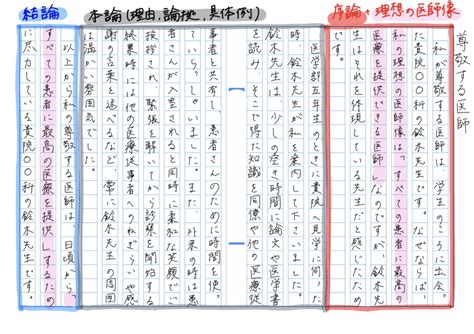 序論+理想の医師像
本論(理由,論拠,具体例)
結論
尊敬する医師
私が尊敬する医師は、学生のころに出会っ
た貴院〇〇科の鈴木先生です。なぜならば、
私の理想の医師像は「すべての患者に最高の
医療を提供できる医師」なのですが、鈴木先
生はそれを体現している先生だと感じたため
です。
医学部五年生のときに貴院へ見学に伺った
時、鈴木先生が私を案内して下さいました。
鈴木先生は、少しの空き時間に論文や医学書
を読み、そこで得た知識を同僚や他の医療従
事者と共有し、患者さんのために使用し
ていらっしゃいました。また、外来の時は患
者さんが入室されると同時に柔和な笑顔でご
挨拶され、緊張を解いてから診察を開始する、
終業時には他の医療従事者へのねぎらいや感
謝の言葉を述べるなど、常に鈴木先生の周囲
は温かい雰囲気でした。
以上から私の尊敬する医師は、日頃から、
すべての患者に最高の医療を提供するため
に尽力している貴院〇〇科の鈴木先生です。